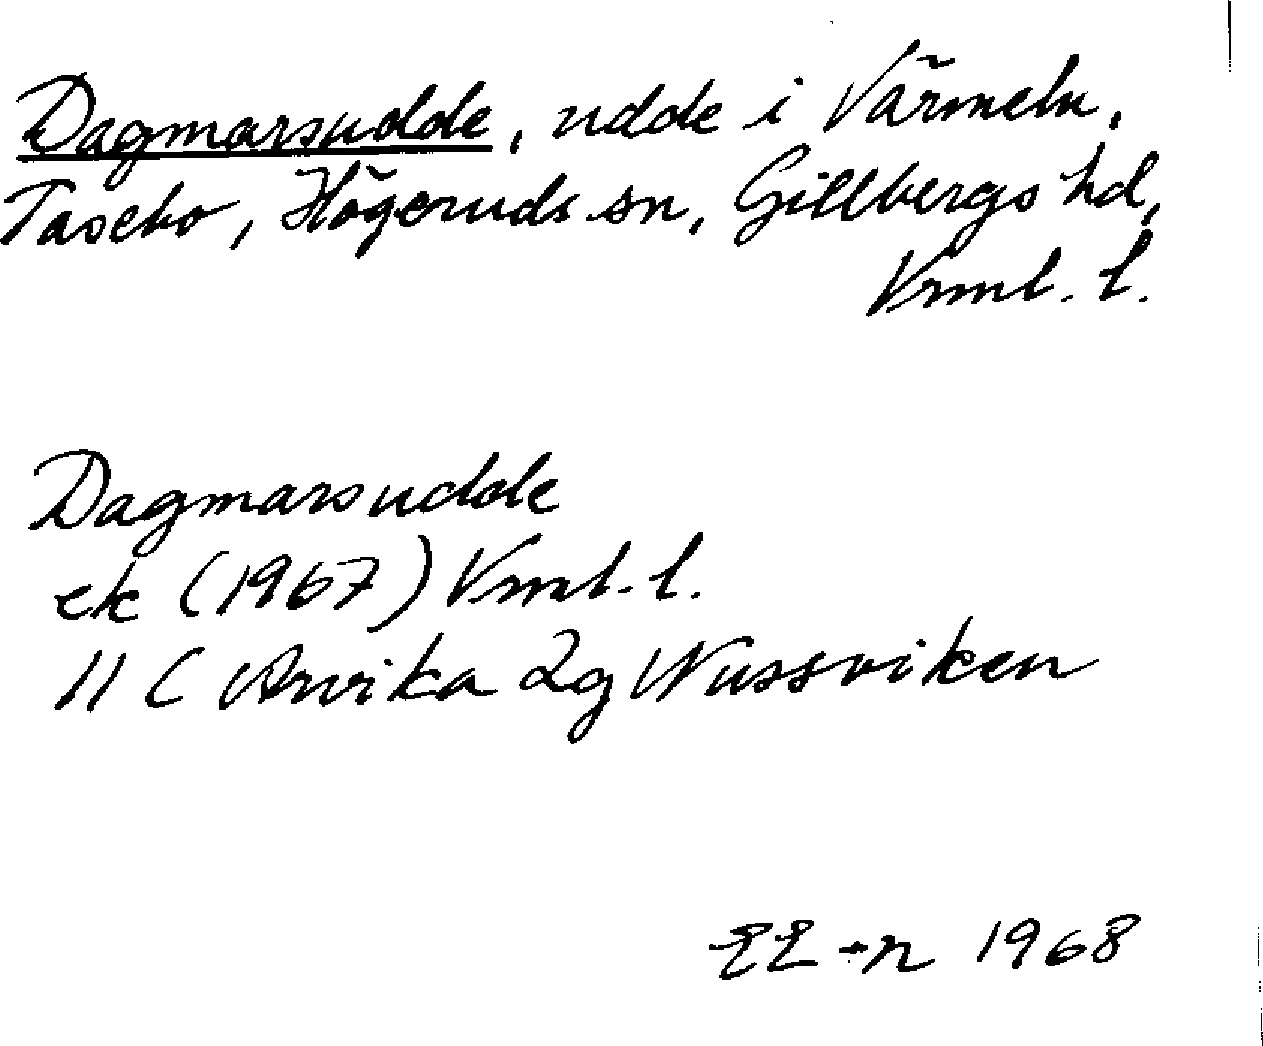 Dagmarsudde, udde i Värmeln,
Tasebo, Högeruds sn, Gillbergs hd,
Vrml. l.
Dagmarsudde
ek (1967) Vrml. l.
11 C Arvika 2g Nussviken
EE-n 1968